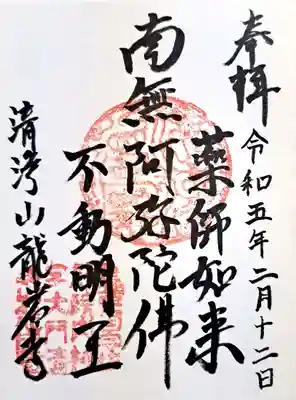 奉拝
令和五年二月十二日
薬師如来
南無阿弥陀佛
不動明王
清涝山龍岩寺